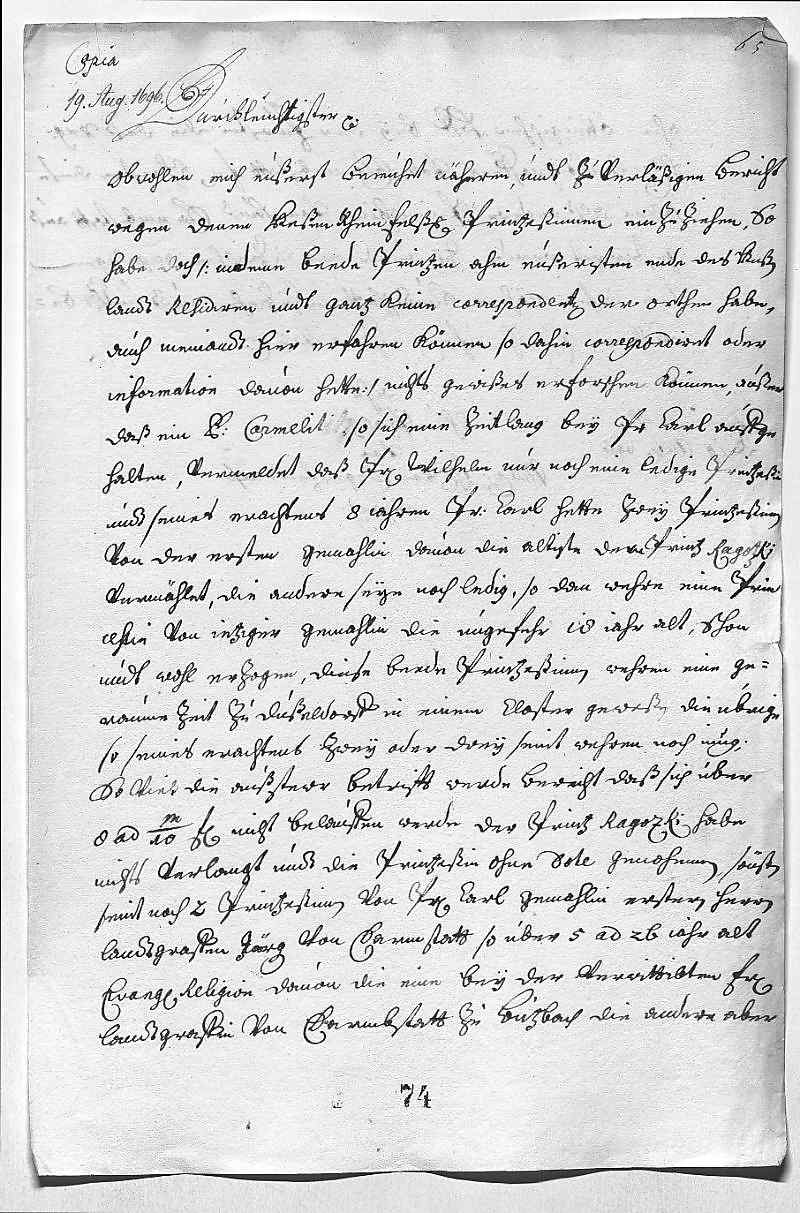 65
Copia
19. Aug. 1696.
Durchleuchtigster
obwohlen mich eüßerst bemühet näheren, undt zuverläßigen bericht
wegen denen Heßen Rheinfelß. Printzeßinnen einzuziehen, So
habe doch /: indeme beede Printzen ahm eüßeristen ende des
landts Residiren undt gantz keine correspondentz der orthen habe,
auch niemandt hier erfahren können so dahin correspondirt oder
information davon hette :/ nichts gewißes erforschen können, außer
daß ein P: Carmelit so sich eine Zeitlang bey Pr Carl auffge
halten, Vermeldet daß Pr. Wilhelm nur noch eine ledige Printzeßin
undt seines erachtens 8 jahren Pr: Carl hette Zwey Printzeßinen
Von der ersten gemahlin davon die alteste dem Printz Ragozki
Vermählet, die andere seye noch ledig, so dan wehre eine Prin
ceßin Von ietziger gemahlin die ungefehr 18 jahr alt, Schon
undt wohl erzogen, diese beede Printzeßinen wehren eine ge=
raume Zeit zu Düßeldorff in einem Closter geweßen die übrige
so seines erachtens Zwey oder drey seint wehren noch jung.
So Viel die außsteur betrifft werde bericht daß sich über
8 ad m/10 fl nicht belauffen werde der Printz Ragozki habe
nichts Verlangt undt die Printzeßin ohne Dote genohmen, sonst
seint noch 2 Printzeßinen Von Pr. Carl gemahlin ersten herrn
landtgraffen Görg Von Darmstatt so über 5 ad 26 jahr alt
Evangl. Religion davon die eine bey der Verwittibten Fr.
landtgraffin Von Darmbstatt zu Butzbach die andere aber
74